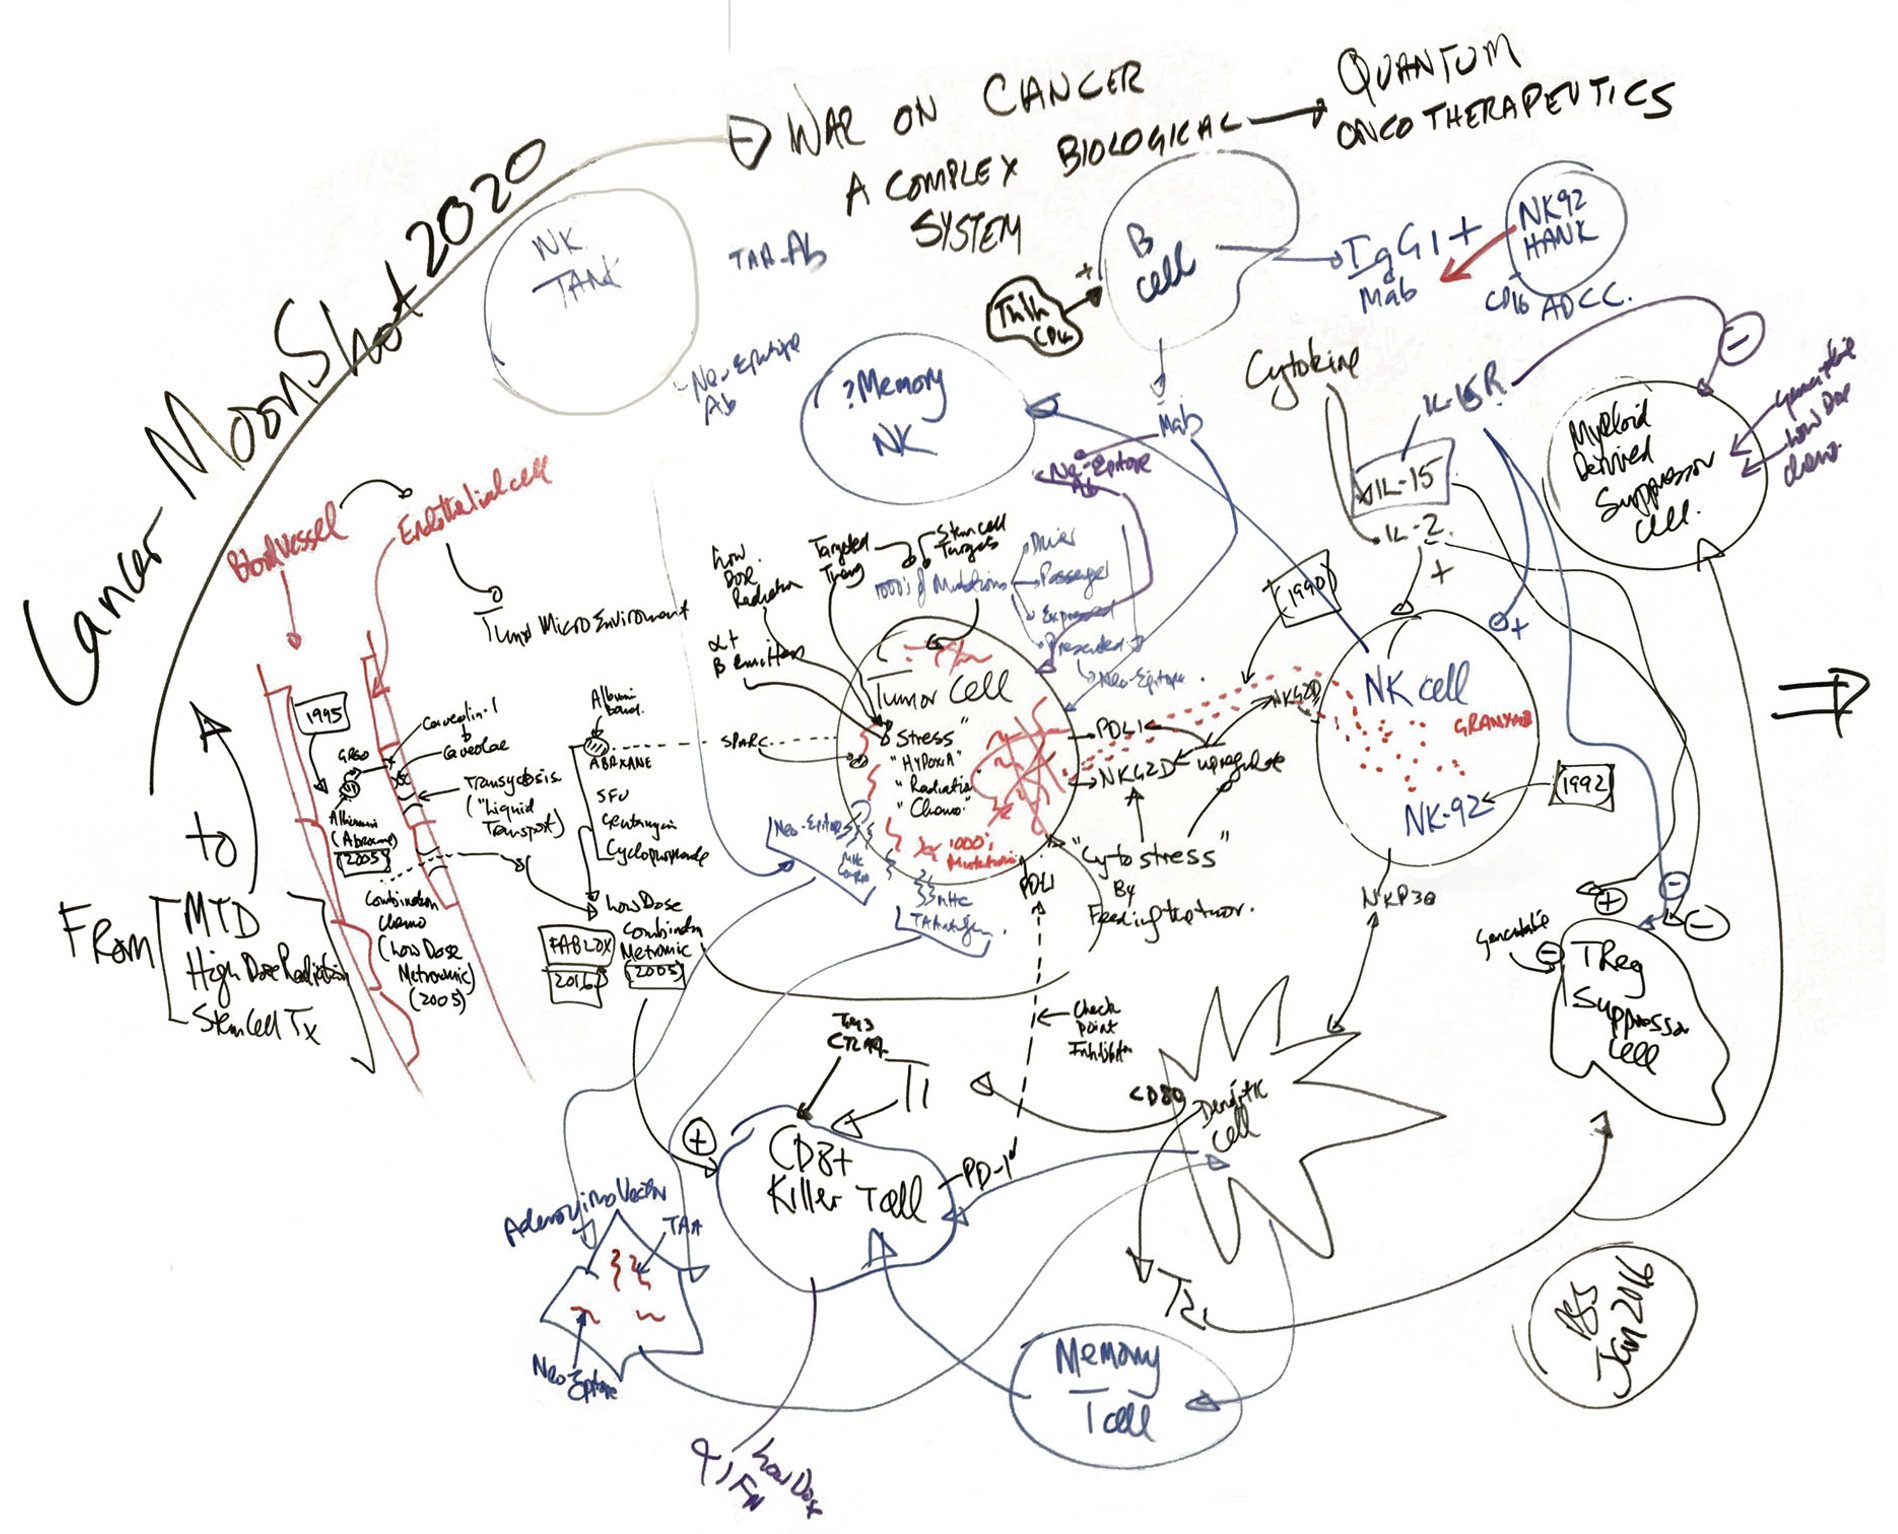 Cancer MoonShot 2020
WAR ON CANCER
A COMPLEX BIOLOGICAL
SYSTEM
QUANTUM
ONCOTHERAPEUTICS
NK
TANK
TAA-Ab
Neo-Epitope
Ab
B
Cell
CD4
+
IgG1 +
Mab
NK92
HANK
CD16 ADCC.
?Memory
NK
Mab
Neo-Epitope
Ab
Cytokine
IL-15R
IL-15
IL-2
+
+
−
Myeloid
Derived
Suppressor
Cell.
Gemcitabine
Low Dose
chemo.
Blood Vessel
Endothelial cell
Tumor MicroEnvironment
Low
Dose
Radiation
α +
B emitters
Targeted
Therapy
Stem cell
Targets
1000's of Mutations
Driver
Passenger
Expressed
Presented
Neo-Epitope.
1990
Tumor Cell
Stress
"Hypoxia"
"Radiation
"Chemo"
1000's
Mutations
PDL1
NKG2D
NKG2D
upregulate
NK cell
GRANZYME
NK-92
1992
1995
GP60
Caveolin-1
Caveolae
Transcytosis
("Liquid
Transport)
Albumin
(Abraxane)
2005
Albumin
bound.
ABRAXANE
SPARC
5FU
Cyclophosphamide
Low Dose
Combination
Metronomic
(2005)
FABLOX
2016
Combination
Chemo
(Low Dose
Metronomic)
(2005)
Neo-Epitope
MHC
Complex
MHC
TAAntigen
PDL1
"Cytostress"
By
Feeding the tumor.
NKP30
FROM
MTD
High Dose Radiation
Stem Cell Tx
to
Check
point
Inhibitor
CTLA4
T1
+
CD8+
Killer T cell
PD-1
CD80
Dendritic
Cell
T2
+
−
−
Gemcitabine
−
TReg
Suppressor
Cell
Adenovirus Vector
TAA
Neo-Epitope
Memory
T cell
PSS
Jan 2016
Low Dose